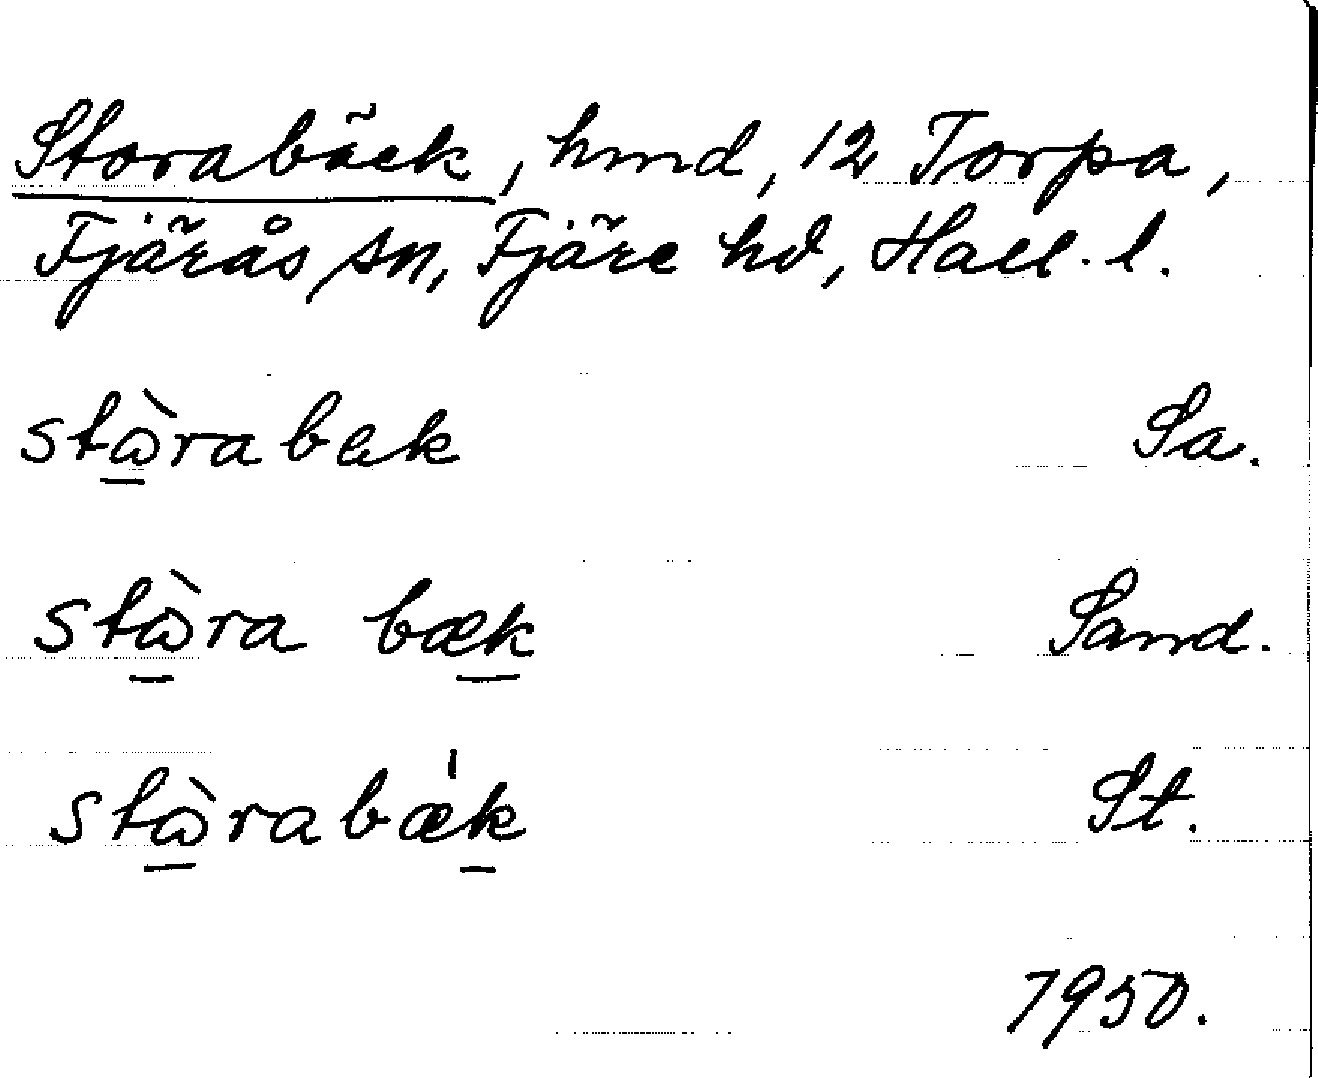 Storabäck, hmd, 12 Torpa,
Fjärås sn, Fjäre hd, Hall. l.
stὼrabæk Sa.
stὼra bæk Sand.
stὼrabæ̍k St.
1950.